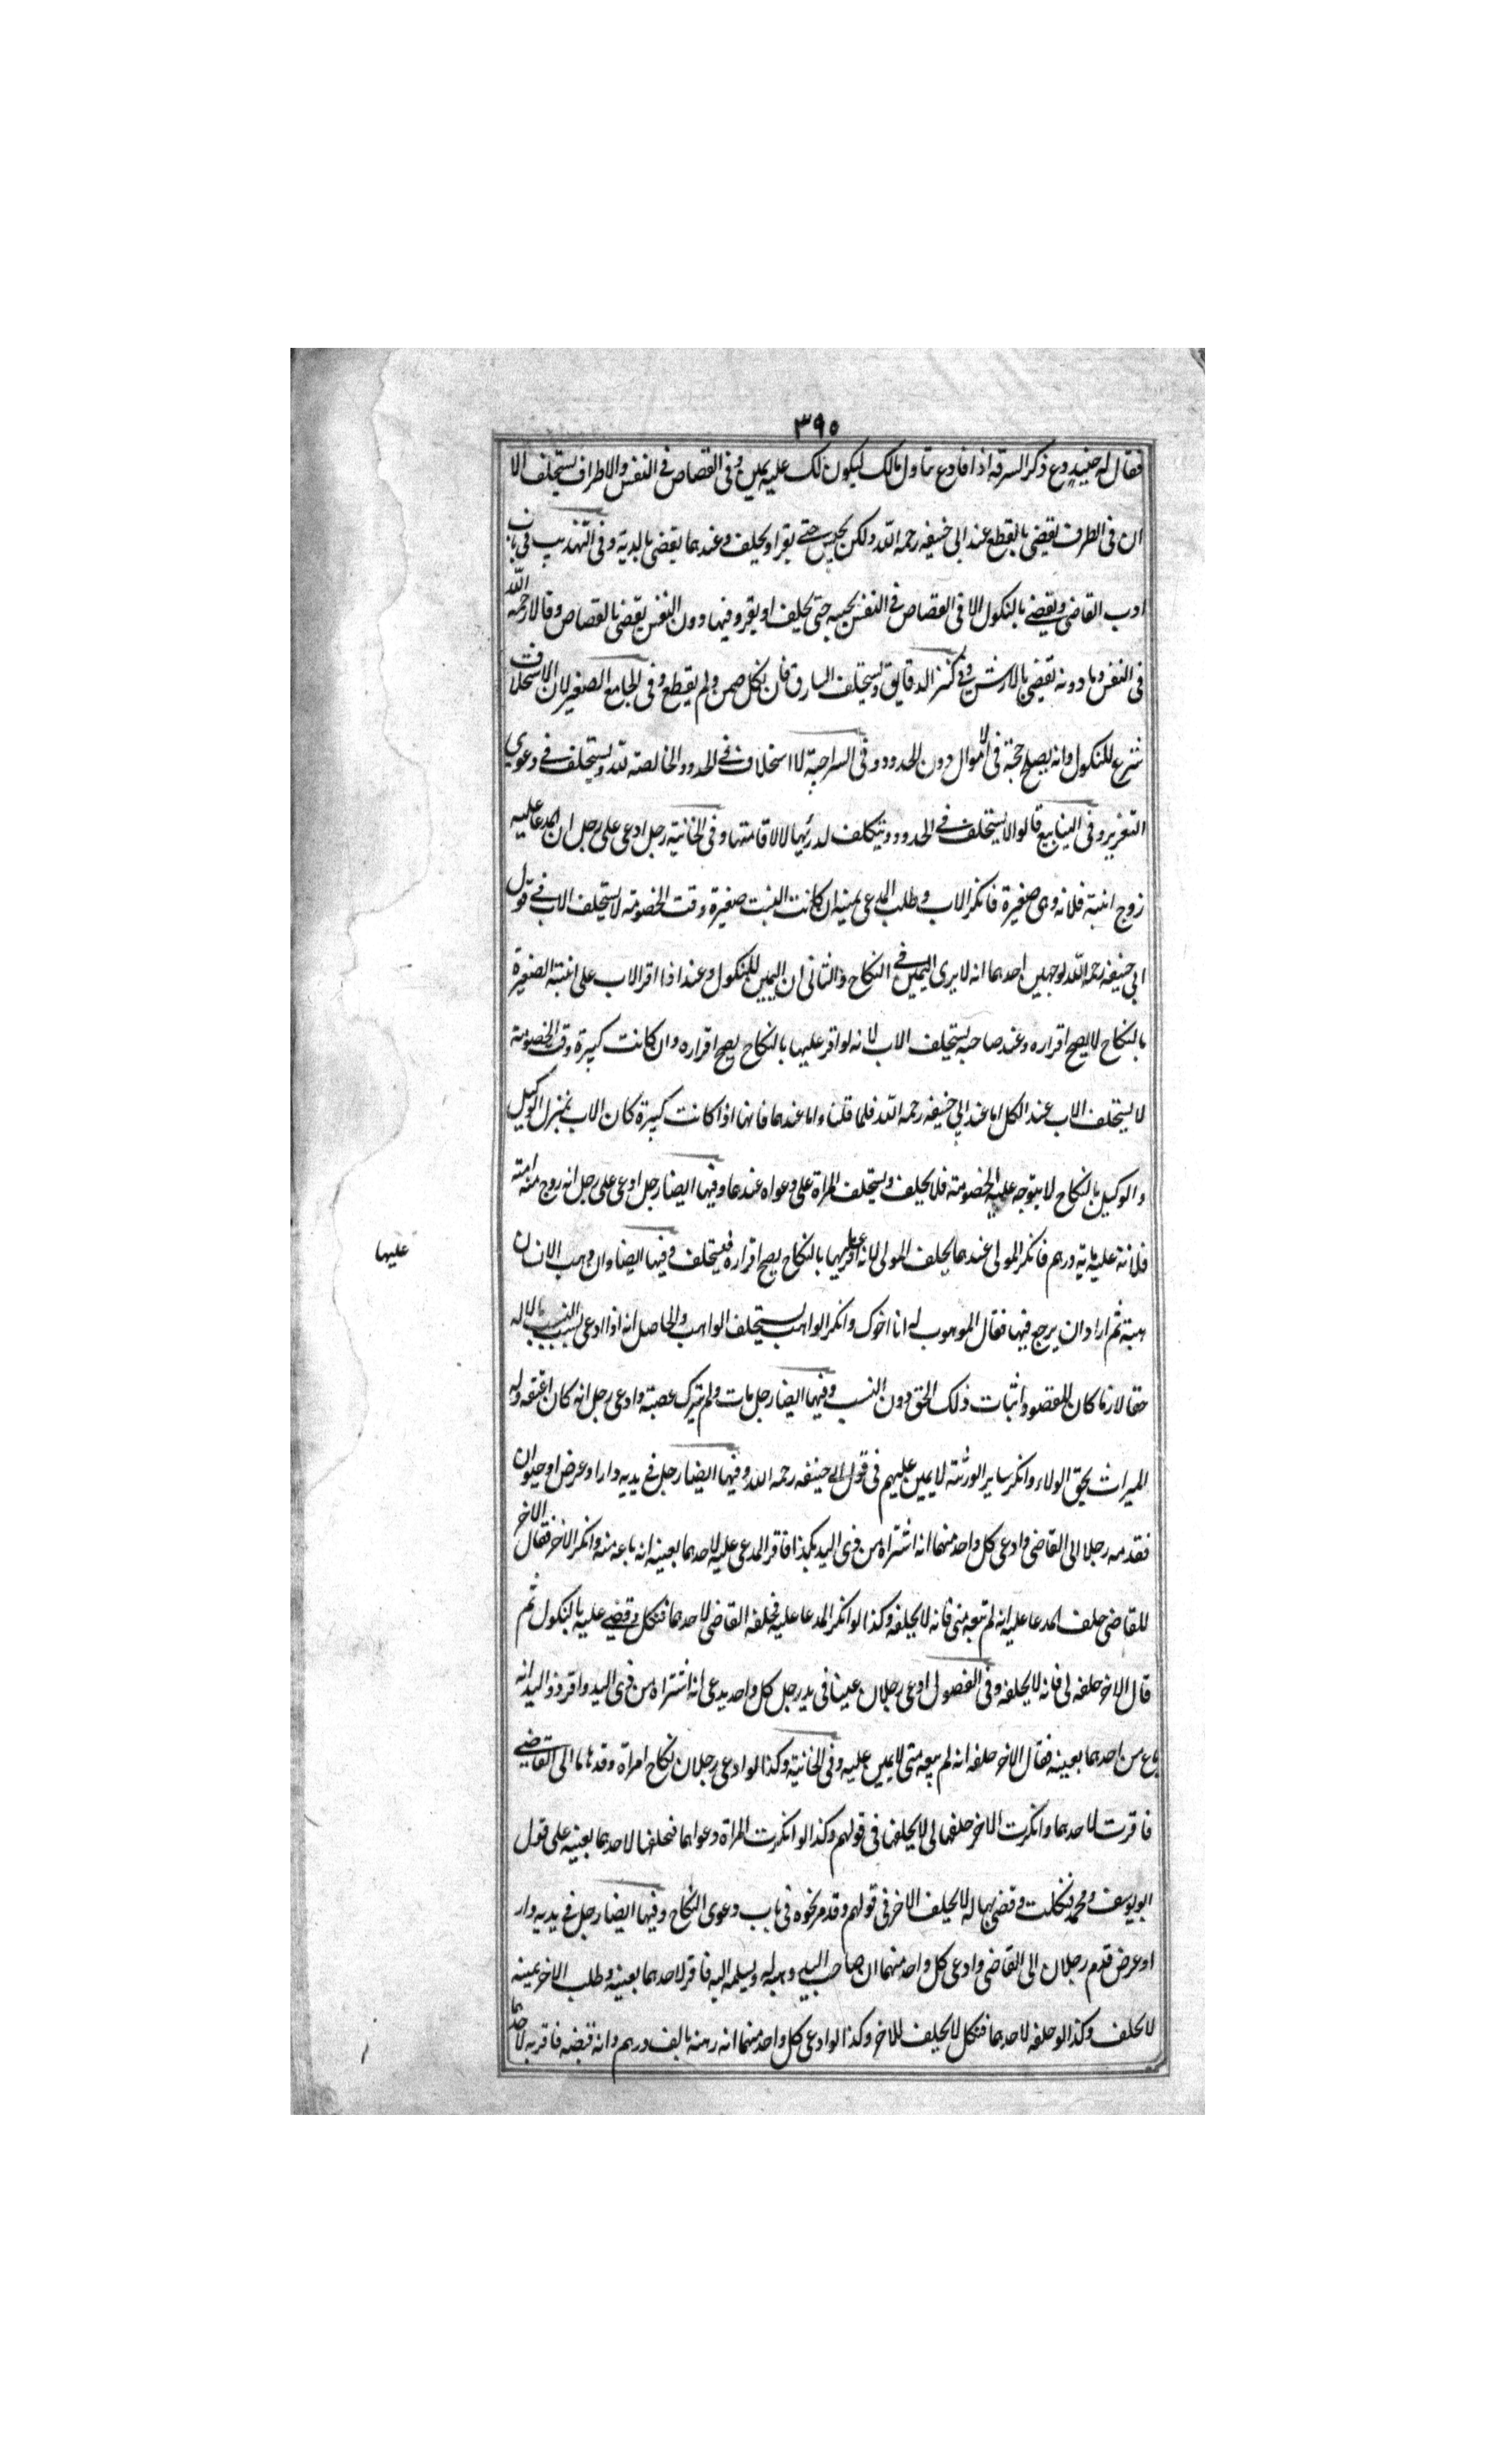 ٣٩٥
فقال له حينئذ دع ذكر السرقة اذا فادع تناول مالك ليكون لك عليه يمين وفى القصاص فى النفس والاطراف يستحلف الا
ان فى الطرف يقضى بالقطع عند ابى حنيفه رحمه الله ولكن يحبس حتى يقر او يحلف وعندهما يقضى بالدية وفى التهذيب فى باب
ادب القاضى ويقضى بالنكول الا فى القصاص فى النفس يحبسه حتى يحلف او يقر وفيما دون النفس يقضى بالقصاص وقالا رحمه الله
فى النفس وما دونه يقضى بالارش وفى كنز الدقايق ويستحلف السارق فان نكل ضمن ولم يقطع وفى الجامع الصغير لان الاستحلاف
شرع للنكول وانه يصلح حجة فى الاموال دون الحدود وفى السراجية لا استحلاف فى الحدود الخالصة لله ويستحلف فى دعوى
التعزير وفى الينابيع قالوا لا يستحلف فى الحدود ويتكلف لدرئها لا لاقامتها وفى الخانية رجل ادعى على رجل ان المدعا عليه
زوج ابنته فلانه وى صغيرة فانكر الاب وطلب المدعى يمينه ان كانت البنت صغيرة وقت الخصومة لا يستحلف الاب فى قول
ابى حنيفه رحمه الله لوجهين احدهما انه لا يرى اليمين فى النكاح والثانى ان اليمين للنكول وعند اذا اقر الاب على ابنته الصغيرة
بالنكاح لا يصح اقراره وعند صاحبيه يستحلف الاب لانه لو اقر عليها بالنكاح يصح اقراره وان كانت كبيرة وقت الخصومة
لا يستحلف الاب عند الكل اما عند ابى حنيفه رحمه الله فلما قلنا واما عندهما فانها اذا كانت كبيرة كان الاب بمنزل الوكيل
والوكيل بالنكاح لا يتوجه عليه الخصومة فلا يحلف ويستحلف المراة على دعواه عندهما وفيها ايضا رجل ادعى على رجل انه زوج منه امته
فلانة عليه ماية درهم فانكر المولى عندهما يحلف المولى لانه لو اقر عليها بالنكاح يصح اقراره فيستحلف وفيها ايضا وان وهب الانسان
عليها
هبة ثم اراد ان يرجع فيها فقال الموهوب له انا اخوك وانكر الواهب يستحلف الواهب والحاصل انه اذا ادعى بسبب النسب مالا له
حقا لازما كان المقصود اثبات ذلك الحق دون النسب وفيها ايضا رجل مات ولم يترك عصبة وادعى رجل انه كان اعتقه وله
الميراث بحق الولاء وانكر ساير الورثة لا يمين عليهم فى قول ابى حنيفه رحمه الله وفيها ايضا رجل فى يديه دار او عرض او حيوان
فقدمه رجلا الى القاضى وادعى كل واحد منهما انه اشتراه من ذى اليد بكذا فاقر المدعى عليه لاحدهما بعينه انه باعه منه وانكر الاخر فقال الاخر
للقاضى حلف المدعا عليه انه لم تبعه منى فانه لا يحلفه وكذا لو انكر المدعا عليه فحلفه القاضى لاحدهما فنكل وقضى عليه بالنكول ثم
قال الاخر حلفه لى فانه لا يحلفه وفى الفصول ادعى رجلان عينا فى يد رجل كل واحد يدعى انه اشتراه من ذى اليد واقر ذو اليد انه
باع من احدهما بعينه فقال الاخر حلفه انه لم يبعه منى لا يمين عليه وفى الخانية وكذا لو ادعى رجلان نكاح امراة وقدماها الى القاضى
فاقرت لاحدهما وانكرت الاخر حلفها لى لا يحلفها فى قولهم وكذا لو انكرت المراة دعواهما فحلفها لاحدهما بعينه على قول
ابويوسف ومحمد فنكلت وقضى بها له لا يحلف الاخر فى قولهم وقد مر نحوه فى باب دعوى النكاح وفيها ايضا رجل فى يديه دار
او عرض قدم رجلان الى القاضى وادعى كل واحد منهما ان صاحب اليد وهبه له ويسلمه اليه فاقر لاحدهما بعينه وطلب الاخر يمينه
لا يحلف وكذا لو حلفه لاحدهما فنكل لا يحلف للاخر وكذا لو ادعى كل واحد منهما انه رهنه بالف درهم وانه قبضه فاقر به لاحدهما